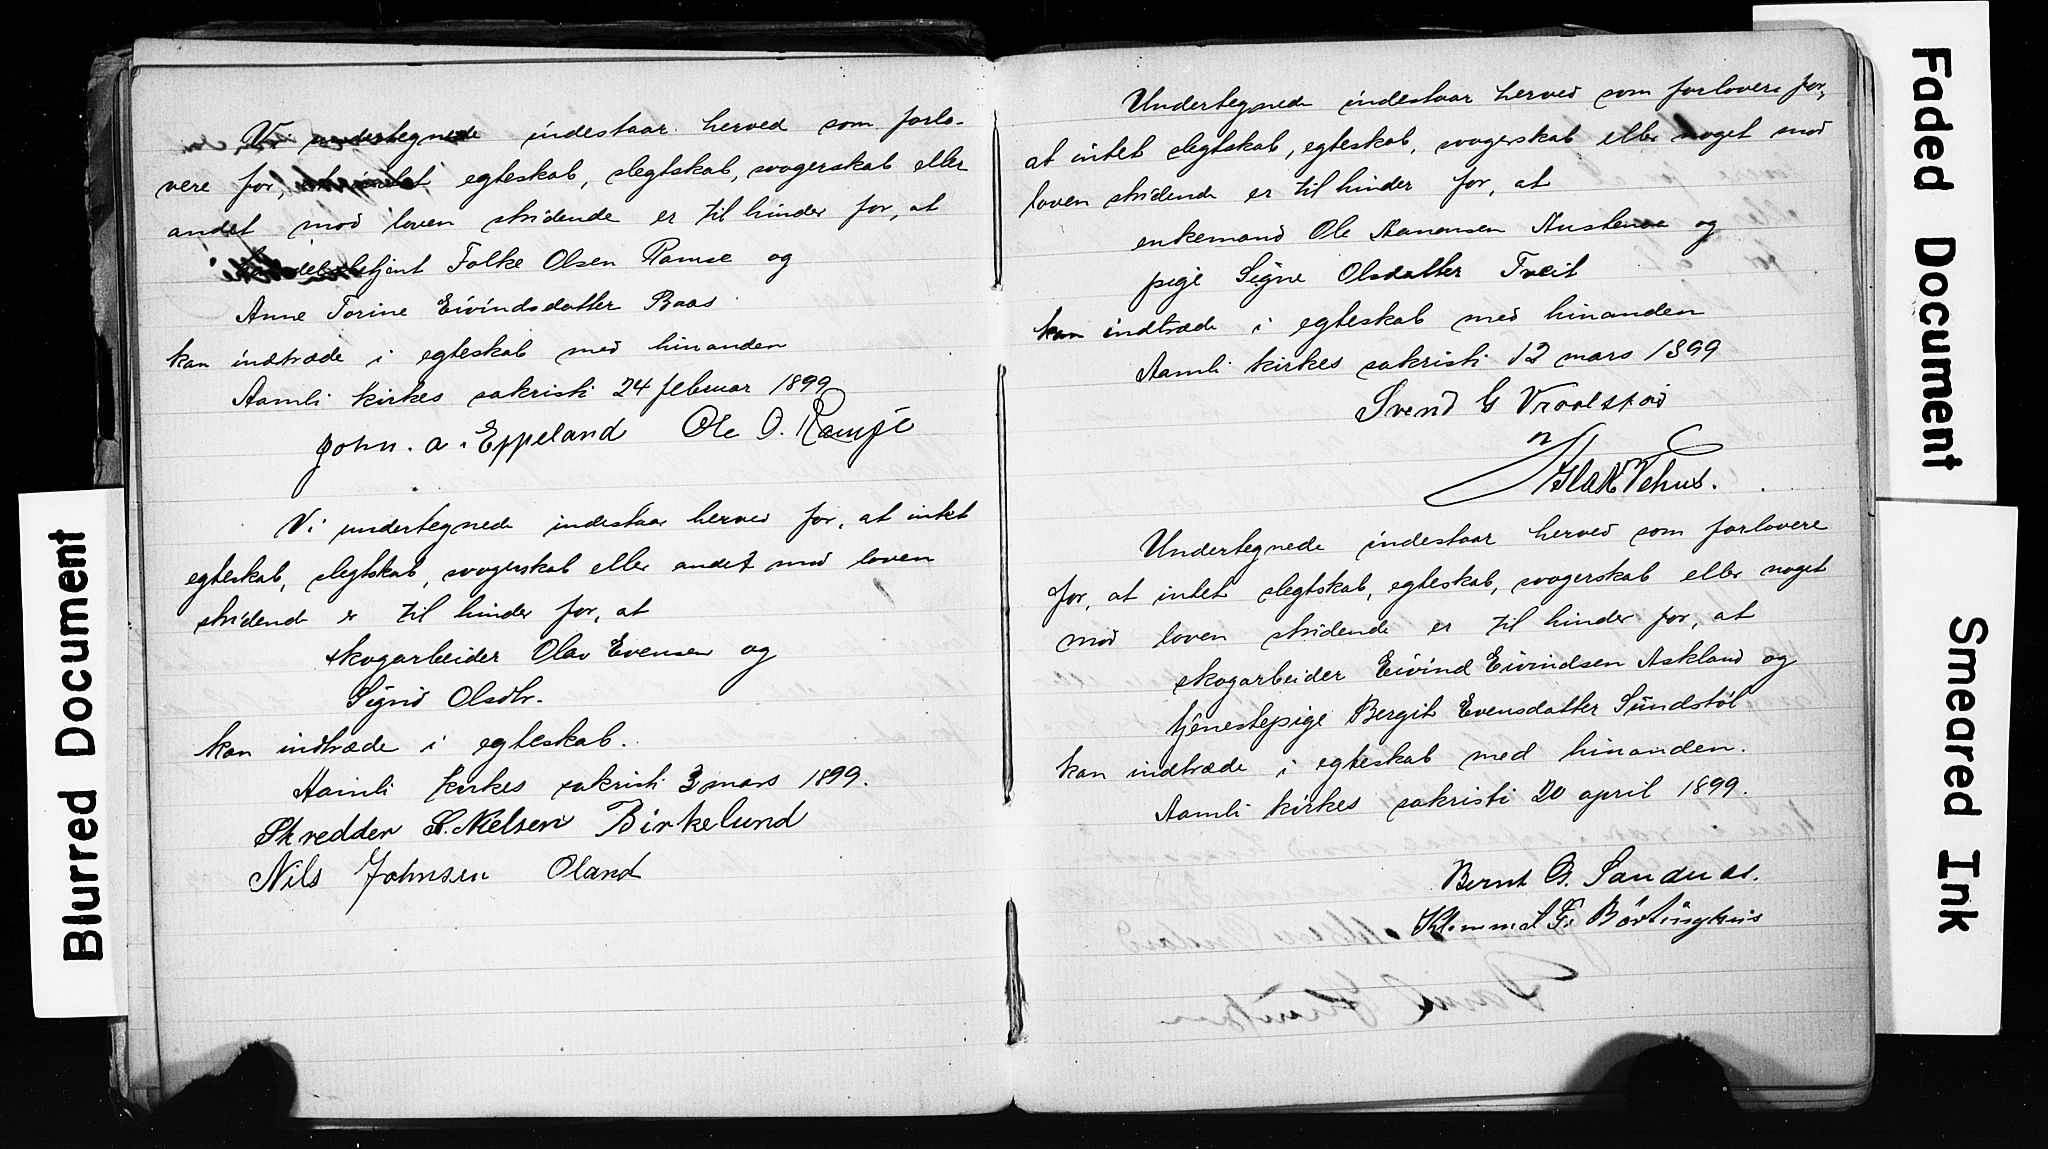 Vi undertegnede indestaar herved som forlo-
vere for, at intet egteskab, slegtskab, svogerskab eller
andet mod loven stridende er til hinder for, at
handelsbetjent Folke Olsen Ramse og
Anne Torine Eivindsdatter Baas
kan indtræde i egteskab med hinanden
Aamli kirkes sakristi 24 februar 1899
John. A. Eppeland Ole O. Ramse
Vi undertegnede indestaar herved for, at intet
egteskab, slegtskab, svogerskab eller andet mod loven
stridende er til hinder for, at
skogarbeider Olav Evensen og
Signe Olsdtr.
kan indtræde i egteskab.
Aamli kirkes sakristi 3 mars 1899.
Skredder S. Nielsen Birkelund
Nils Johnsen Oland
Undertegnede indestaar herved som forlovere for,
at intet slegtskab, egteskab, svogerskab eller noget mod
loven stridende er til hinder for, at
enkemand Ole Aanonsen Austenaa og
pige Signe Olsdatter Tveit
kan indtræde i egteskab med hinanden
Aamli kirkes sakristi 12 mars 1899
Svend G Vraalstad
Aslak Vehus.
Undertegnede indestaar herved som forlovere
for, at intet slegtskab, egteskab, svogerskab eller noget
mod loven stridende er til hinder for, at
skogarbeider Eivind Eivindsen Askland og
tjenestepige Bergit Evensdatter Sundstøl
kan indtræde i egteskab med hinanden.
Aamli kirkes sakristi 20 april 1899.
Bernt G. Sandnes.
Klemmet G. Børtinghus
Blurred Document
Faded Document
Smeared Ink